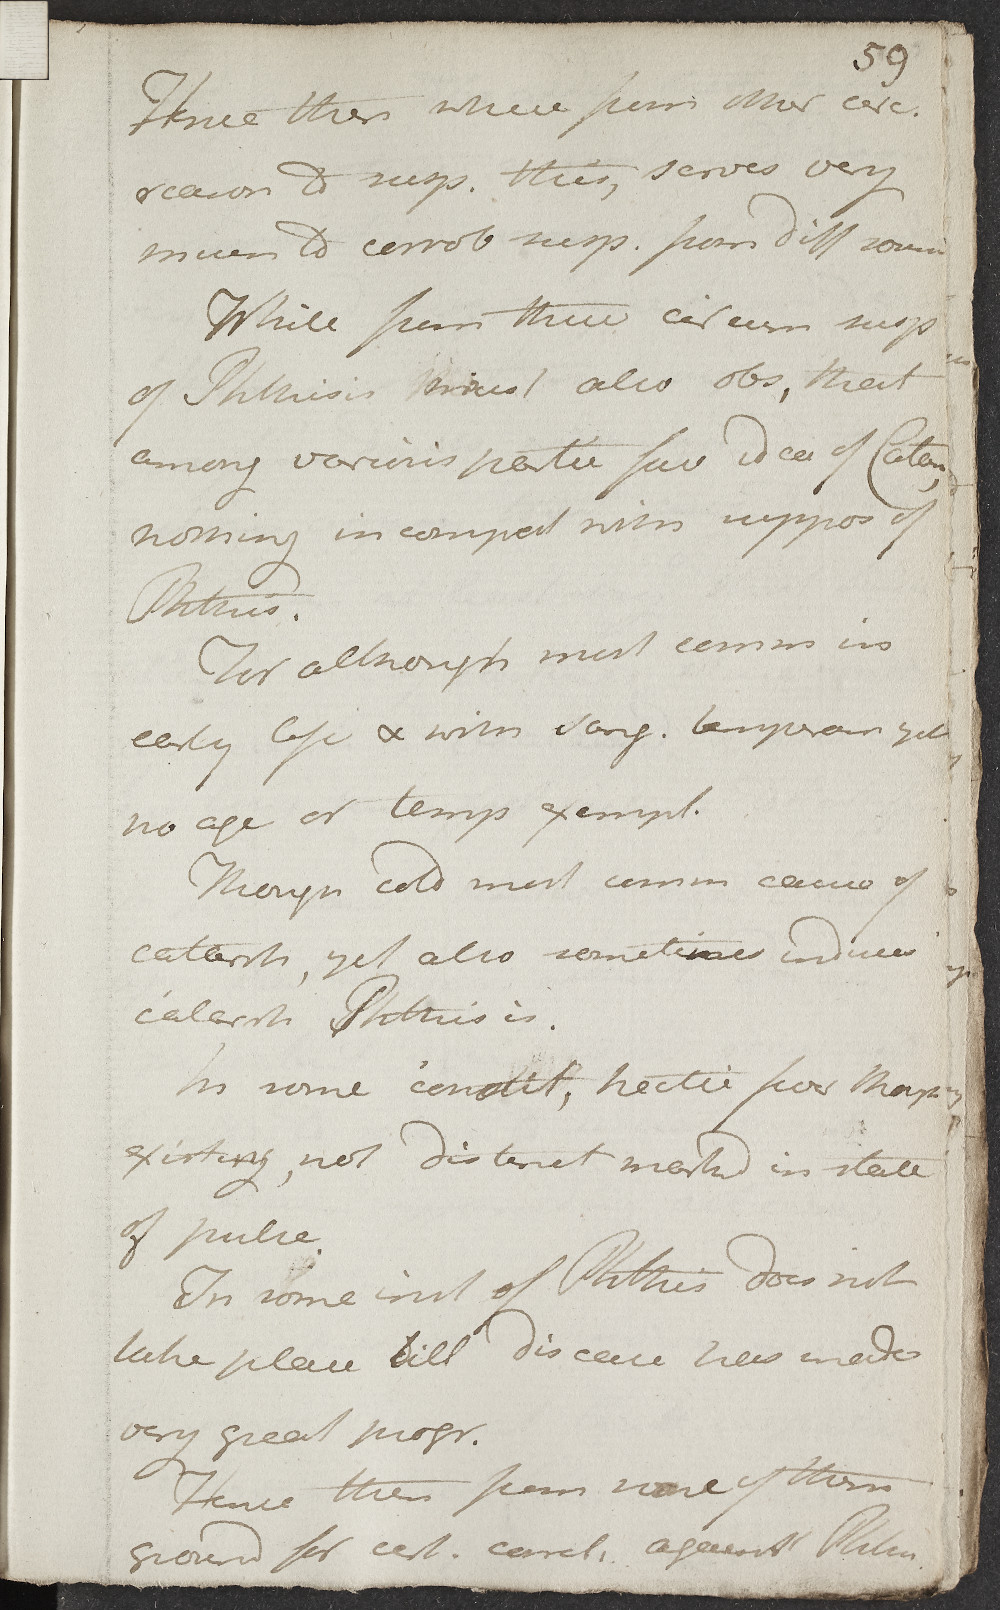 59
Hence then where from other circ.
reason to susp. this, serves very
much to corrob susp. from diff sourc
While from these circum susp
of Phthisis must also obs, that
among various partic fav idea of Catarr,
nothing incompat with suppos of
Phthis.
For although most comm in
early life & with sang. temperam yet
no age or temp exempt.
Though cold most comm cause of
catarrh, yet also sometimes induces
catarrh Phthisis.
In some condit, hectic fever though
existing, not distinct marked in state
of pulse.
In some inst of Phthis does not
take place till disease has made
very great progr.
Hence then from none of them
ground for cert. concl. against Phthis